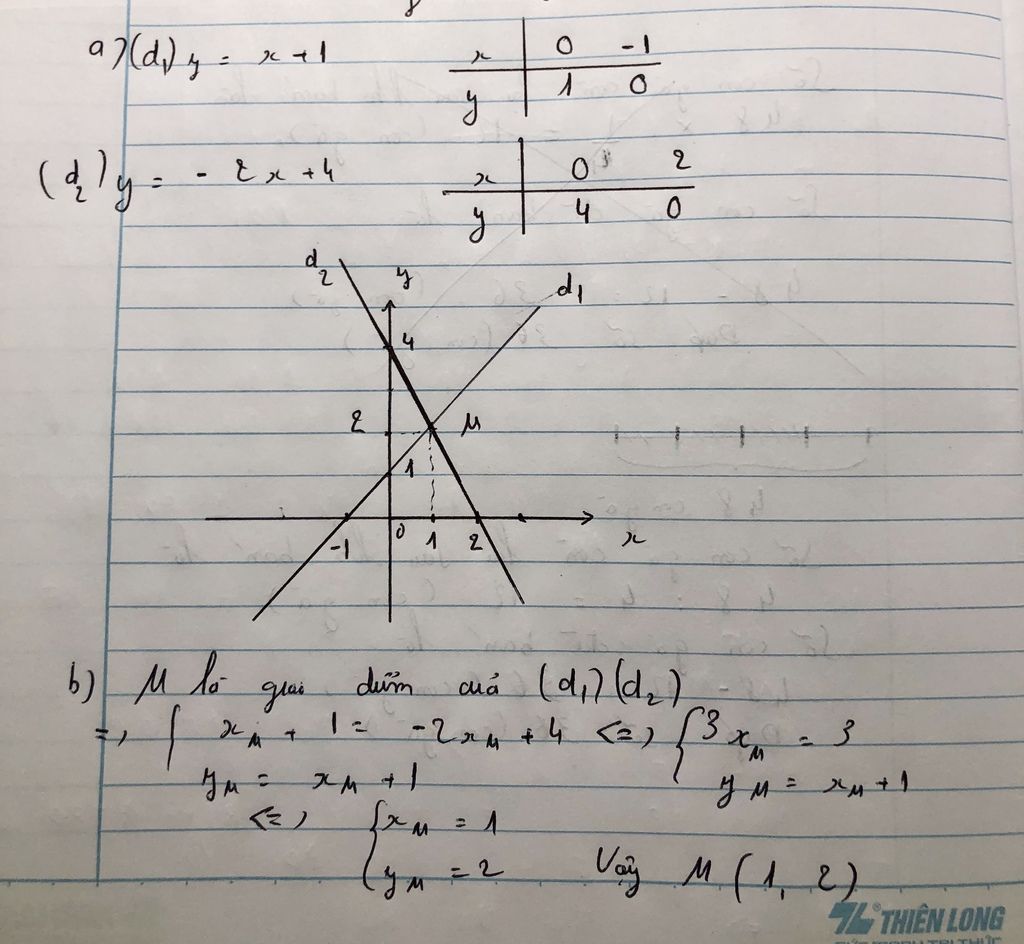 a) (d₁) y = x + 1
x | 0 -1
y | 1 0
(d₂) y = - 2x + 4
x | 0 2
y | 4 0
d₂ y d₁
4
2 M
1
-1 0 1 2 x
b) M là giao điểm của (d₁) (d₂)
=> { x_M + 1 = -2x_M + 4 <=> { 3x_M = 3
y_M = x_M + 1 y_M = x_M + 1
<=> { x_M = 1
y_M = 2 Vậy M (1, 2)
THIÊN LONG